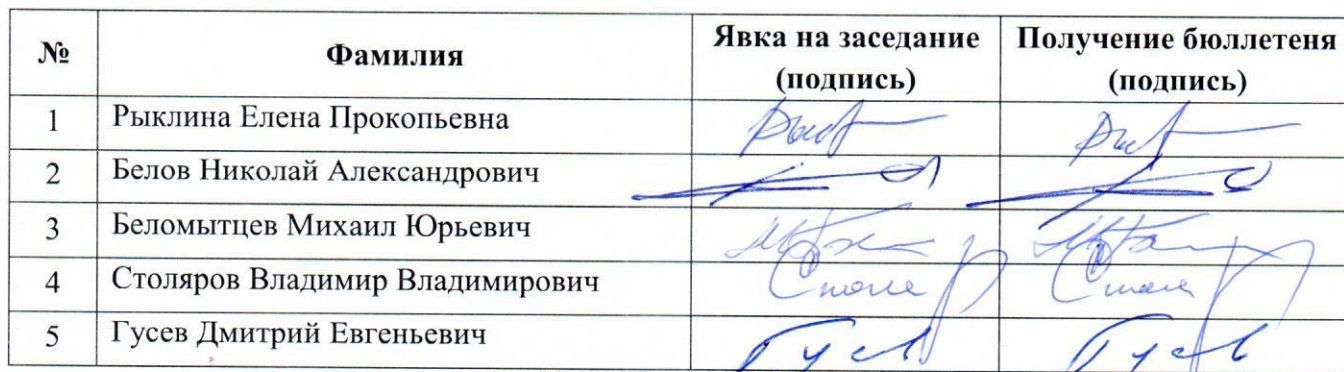 № Фамилия Явка на заседание (подпись) Получение бюллетеня (подпись)
1 Рыклина Елена Прокопьевна
2 Белов Николай Александрович
3 Беломытцев Михаил Юрьевич
4 Столяров Владимир Владимирович
5 Гусев Дмитрий Евгеньевич Гусев Гусев